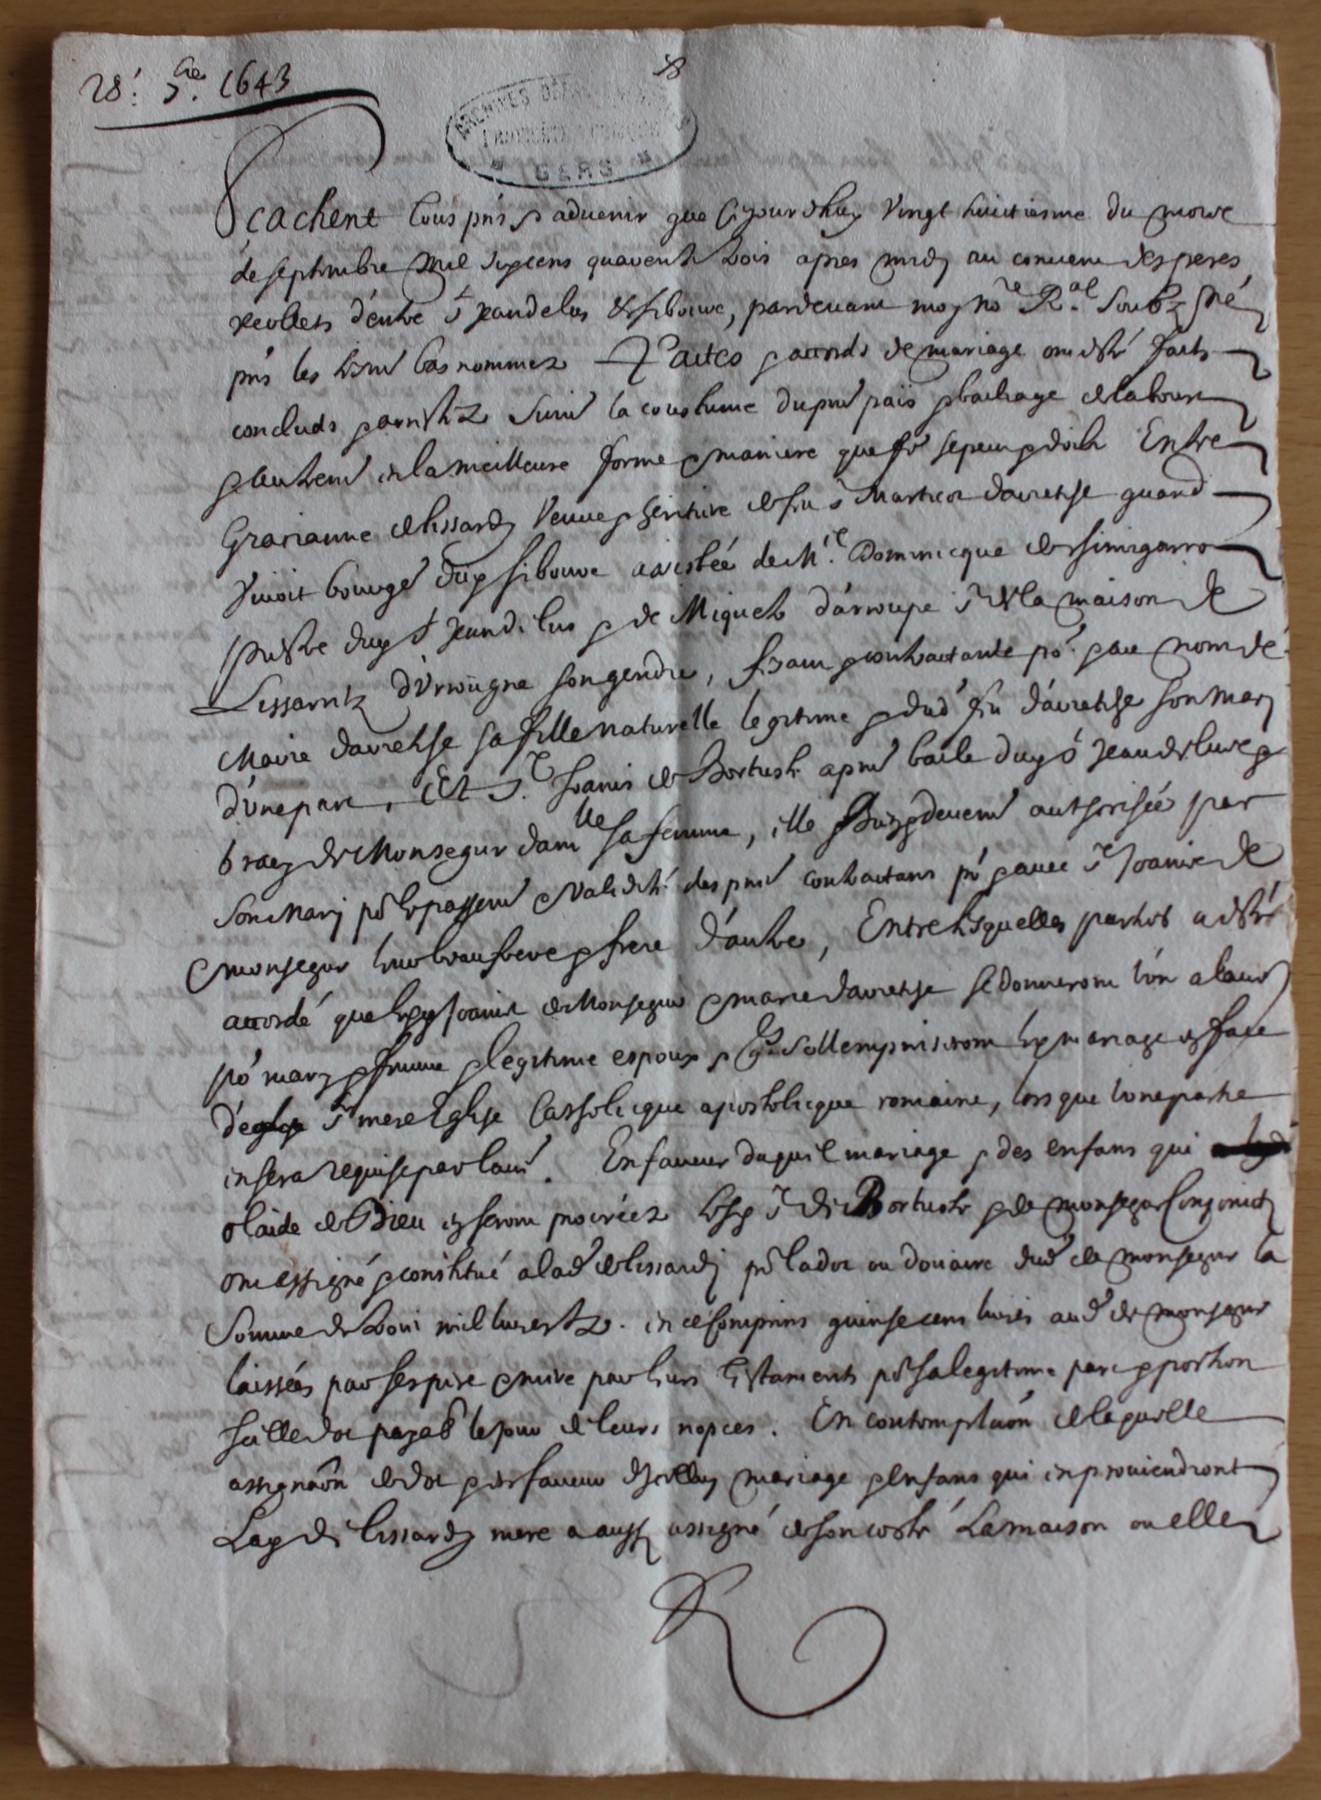 28: 7bre. 1643
ARCHIVES DÉPARTEMENTALES
GERS
Scachent tous pns & aduenir que ce jourdhuy vingt huictiesme du mois
de septembre mil six cens quarente trois apres midy au conuent des peres
recollets d'entre st jean de lus & siboure, pardeuant moy nore Ral soubz sné
pns les tesm bas nommez Pactes & accords de mariage ont esté faits
concluds & arrestez suiut la coustume du pnt païs & bailiage de labourt
& autrement en la meilleure forme & maniere que fe se peut & doibt Entre
Gracianne de lissardy veuue & heritiere de feu sr Martico daretche quand
viuoit bourgs dud sibourre assistée de Mre Dominicque de
prestre dud st jean de lus & de Miguel d'arroupe sr de la maison de
Lissarritz d'Urrougne son gendre, faisant & contractante po & au nom de
Marie daretche sa fille naturelle legitime & dud feu d'aretche son mary
d'une part, Et Sr Joanis de Bortustz apnt baile dud st jean de lus &
de Monsegur damlle sa femme, elle deuemt authorisée par
son mary po le passemt & validité des pnts contractans po & auec sr Joanis de
Monsegur leur beaufrere & frere d'autre, Entre lesquelles parties a esté
accordé que led Joanis de Monsegur & marie daretche se donneront l'un a lautre
po mary & femme & legitime espoux & qls sollempniseront led mariage en face
de ste mere Eglise Catholicque apostolicque romaine, lors que l'une partie
en sera requise par lautre. En faueur duquel mariage & des enfans qui
a laide de Dieu en seront procréez lesd sr de Bortustz & de monsegur conjoincts
ont assigné & constitué a lade de lissardy po la dot ou douaire dud de monsegur la
somme de trois mil liures tz. en ce comprins quinse cens liures aud de monsegur
laissées par ses pere & mere par leurs testaments po sa legitime part & portion
icelle dot payab le jour de leurs nopces. En contemplaon de laquelle
assignaon de dot & en faueur dicelluy mariage & enfans qui en prouiendront
Lad de lissardy mere a aussy assigné de son costé La maison ou elle